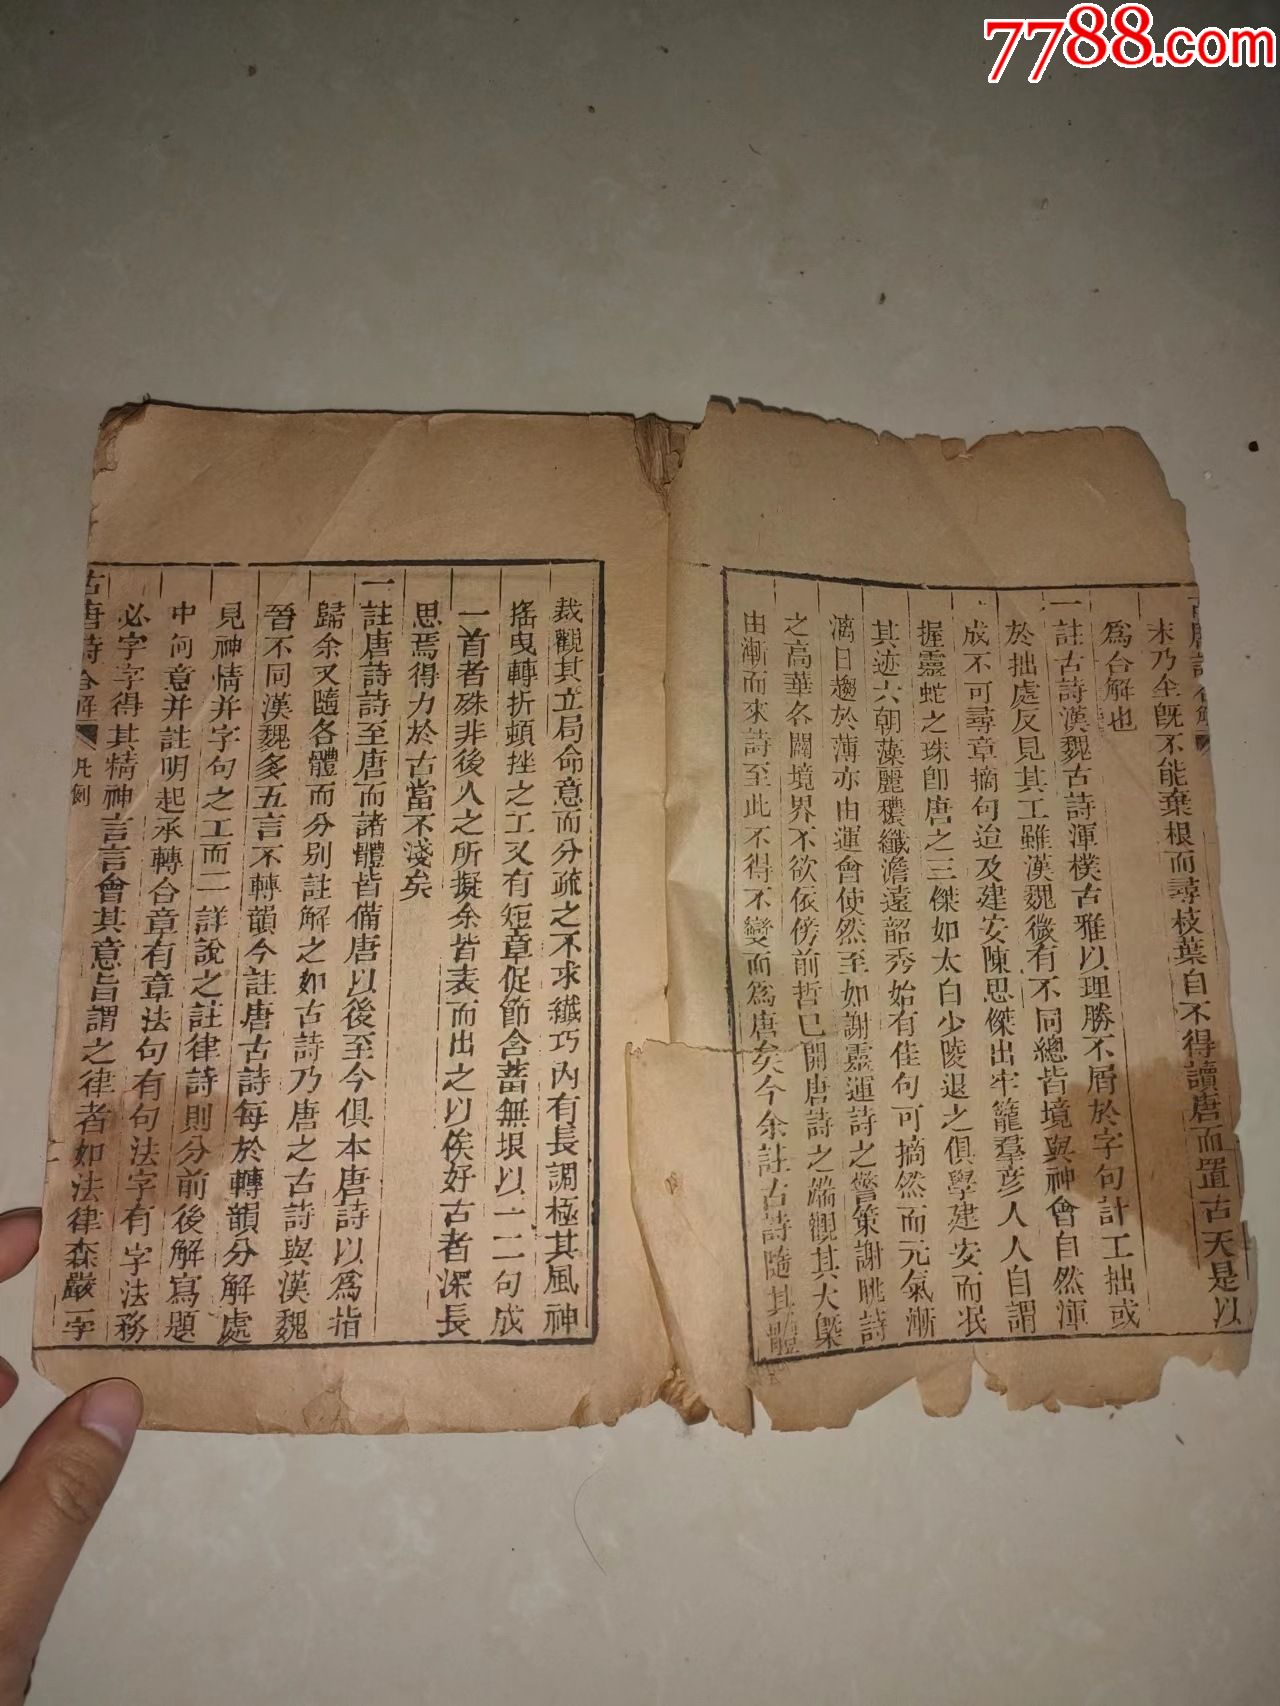 7788.com
末乃全旣不能棄根而尋枝葉自不得讀唐而置古天是以
爲合解也
一註古詩漢魏古詩渾樸古雅以理勝不屑於字句計工拙或
於拙處反見其工雖漢魏微有不同總皆境與神會自然渾
成不可尋章摘句迨及建安陳思傑出牢籠羣彥人人自謂
握靈蛇之珠卽唐之三傑如太白少陵退之俱學建安而泯
其迹六朝藻麗穠纖澹遠韶秀始有佳句可摘然而元氣漸
漓日趨於薄亦由運會使然至如謝靈運詩之警策謝眺詩
之高華各闢境界不欲依傍前哲已開唐詩之端觀其大槩
由漸而來詩至此不得不變而爲唐矣今余註古詩隨其體
裁觀其立局命意而分疏之不求纖巧內有長調極其風神
搖曳轉折頓挫之工又有短章促節含蓄無垠以一二句成
一首者殊非後人之所擬余皆表而出之以俟好古者深長
思焉得力於古當不淺矣
一註唐詩詩至唐而諸體皆備唐以後至今俱本唐詩以爲指
歸余又隨各體而分别註解之如古詩乃唐之古詩與漢魏
晉不同漢魏多五言不轉韻今註唐古詩每於轉韻分解處
見神情并字句之工而一一詳說之註律詩則分前後解寫題
中何意并註明起承轉合章有章法句有句法字有字法務
必字字得其精神言言會其意旨謂之律者如法律森嚴一字
古唐詩合解 凡例